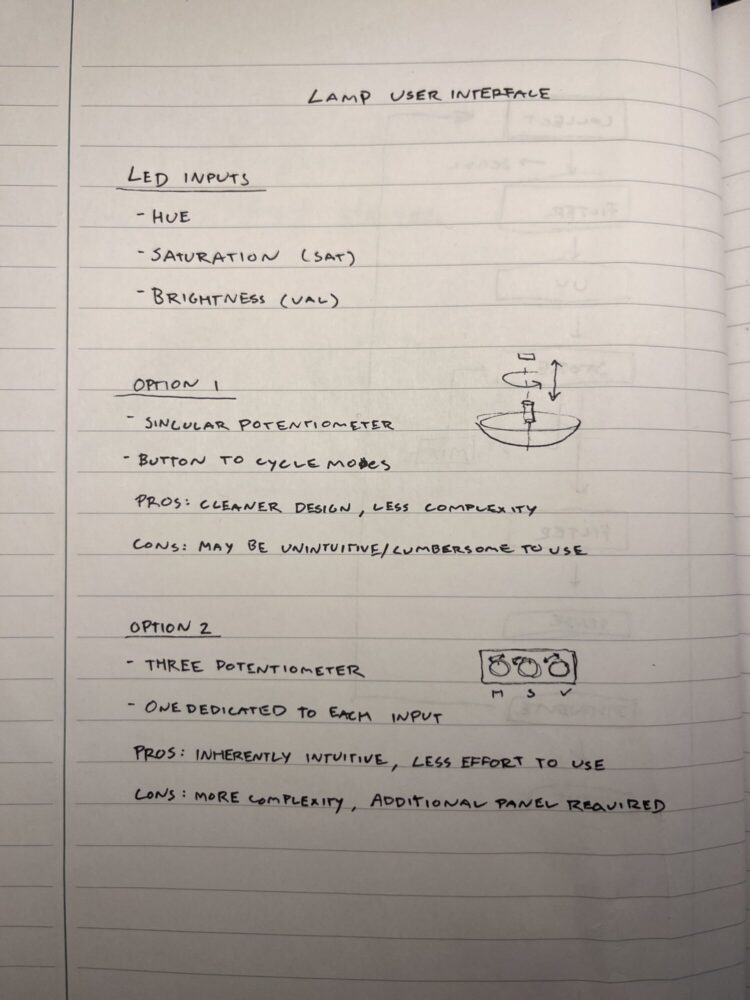 LAMP USER INTERFACE
LED INPUTS
- HUE
- SATURATION (SAT)
- BRIGHTNESS (VAL)
OPTION 1
- SINGULAR POTENTIOMETER
- BUTTON TO CYCLE MODES
PROS: CLEANER DESIGN, LESS COMPLEXITY
CONS: MAY BE UNINTUITIVE/CUMBERSOME TO USE
OPTION 2
- THREE POTENTIOMETER
H S V
- ONE DEDICATED TO EACH INPUT
PROS: INHERENTLY INTUITIVE, LESS EFFORT TO USE
CONS: MORE COMPLEXITY, ADDITIONAL PANEL REQUIRED